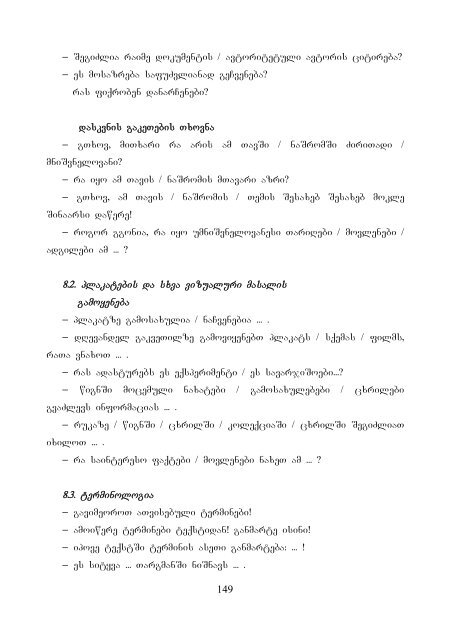 – შეგიძლია რაიმე დოკუმენტის / ავტორიტეტული ავტორის ციტირება?
– ეს მოსაზრება საფუძვლიანად გეჩვენება?
რას ფიქრობენ დანარჩენები?
დასკვნის გაკეთების თხოვნა
– გთხოვ, მითხარი რა არის ამ თავში / ნაშრომში ძირითადი /
მნიშვნელოვანი?
– რა იყო ამ თავის / ნაშრომის მთავარი აზრი?
– გთხოვ, ამ თავის / ნაშრომის / თემის შესახებ შესახებ მოკლე
შინაარსი დაწერე!
– როგორ გგონია, რა იყო უმნიშვნელოვანესი თარიღები / მოვლენები /
ადგილები ამ ... ?
8.2. პლაკატების და სხვა ვიზუალური მასალის
გამოყენება
– პლაკატზე გამოსახულია / ნაჩვენებია ... .
– დღევანდელ გაკვეთილზე გამოვიყენებთ პლაკატს / სქემას / ფილმს,
რათა ვნახოთ ... .
– რას ადასტურებს ეს ექსპერიმენტი / ეს სავარჯიშოები...?
– წიგნში მოცემული ნახატები / გამოსახულებები / ცხრილები
გვაძლევს ინფორმაციას ... .
– რუკაზე / წიგნში / ცხრილში / კოლექციაში / ცხრილში შეგიძლიათ
იხილოთ ... .
– რა საინტერესო ფაქტები / მოვლენები ნახეთ ამ ... ?
8.3. ტერმინოლოგია
– გავიმეოროთ ათვისებული ტერმინები!
– ამოიწერე ტერმინები ტექსტიდან! განმარტე ისინი!
– იპოვე ტექსტში ტერმინის ასეთი განმარტება: ... !
– ეს სიტყვა ... თარგმანში ნიშნავს ... .
149